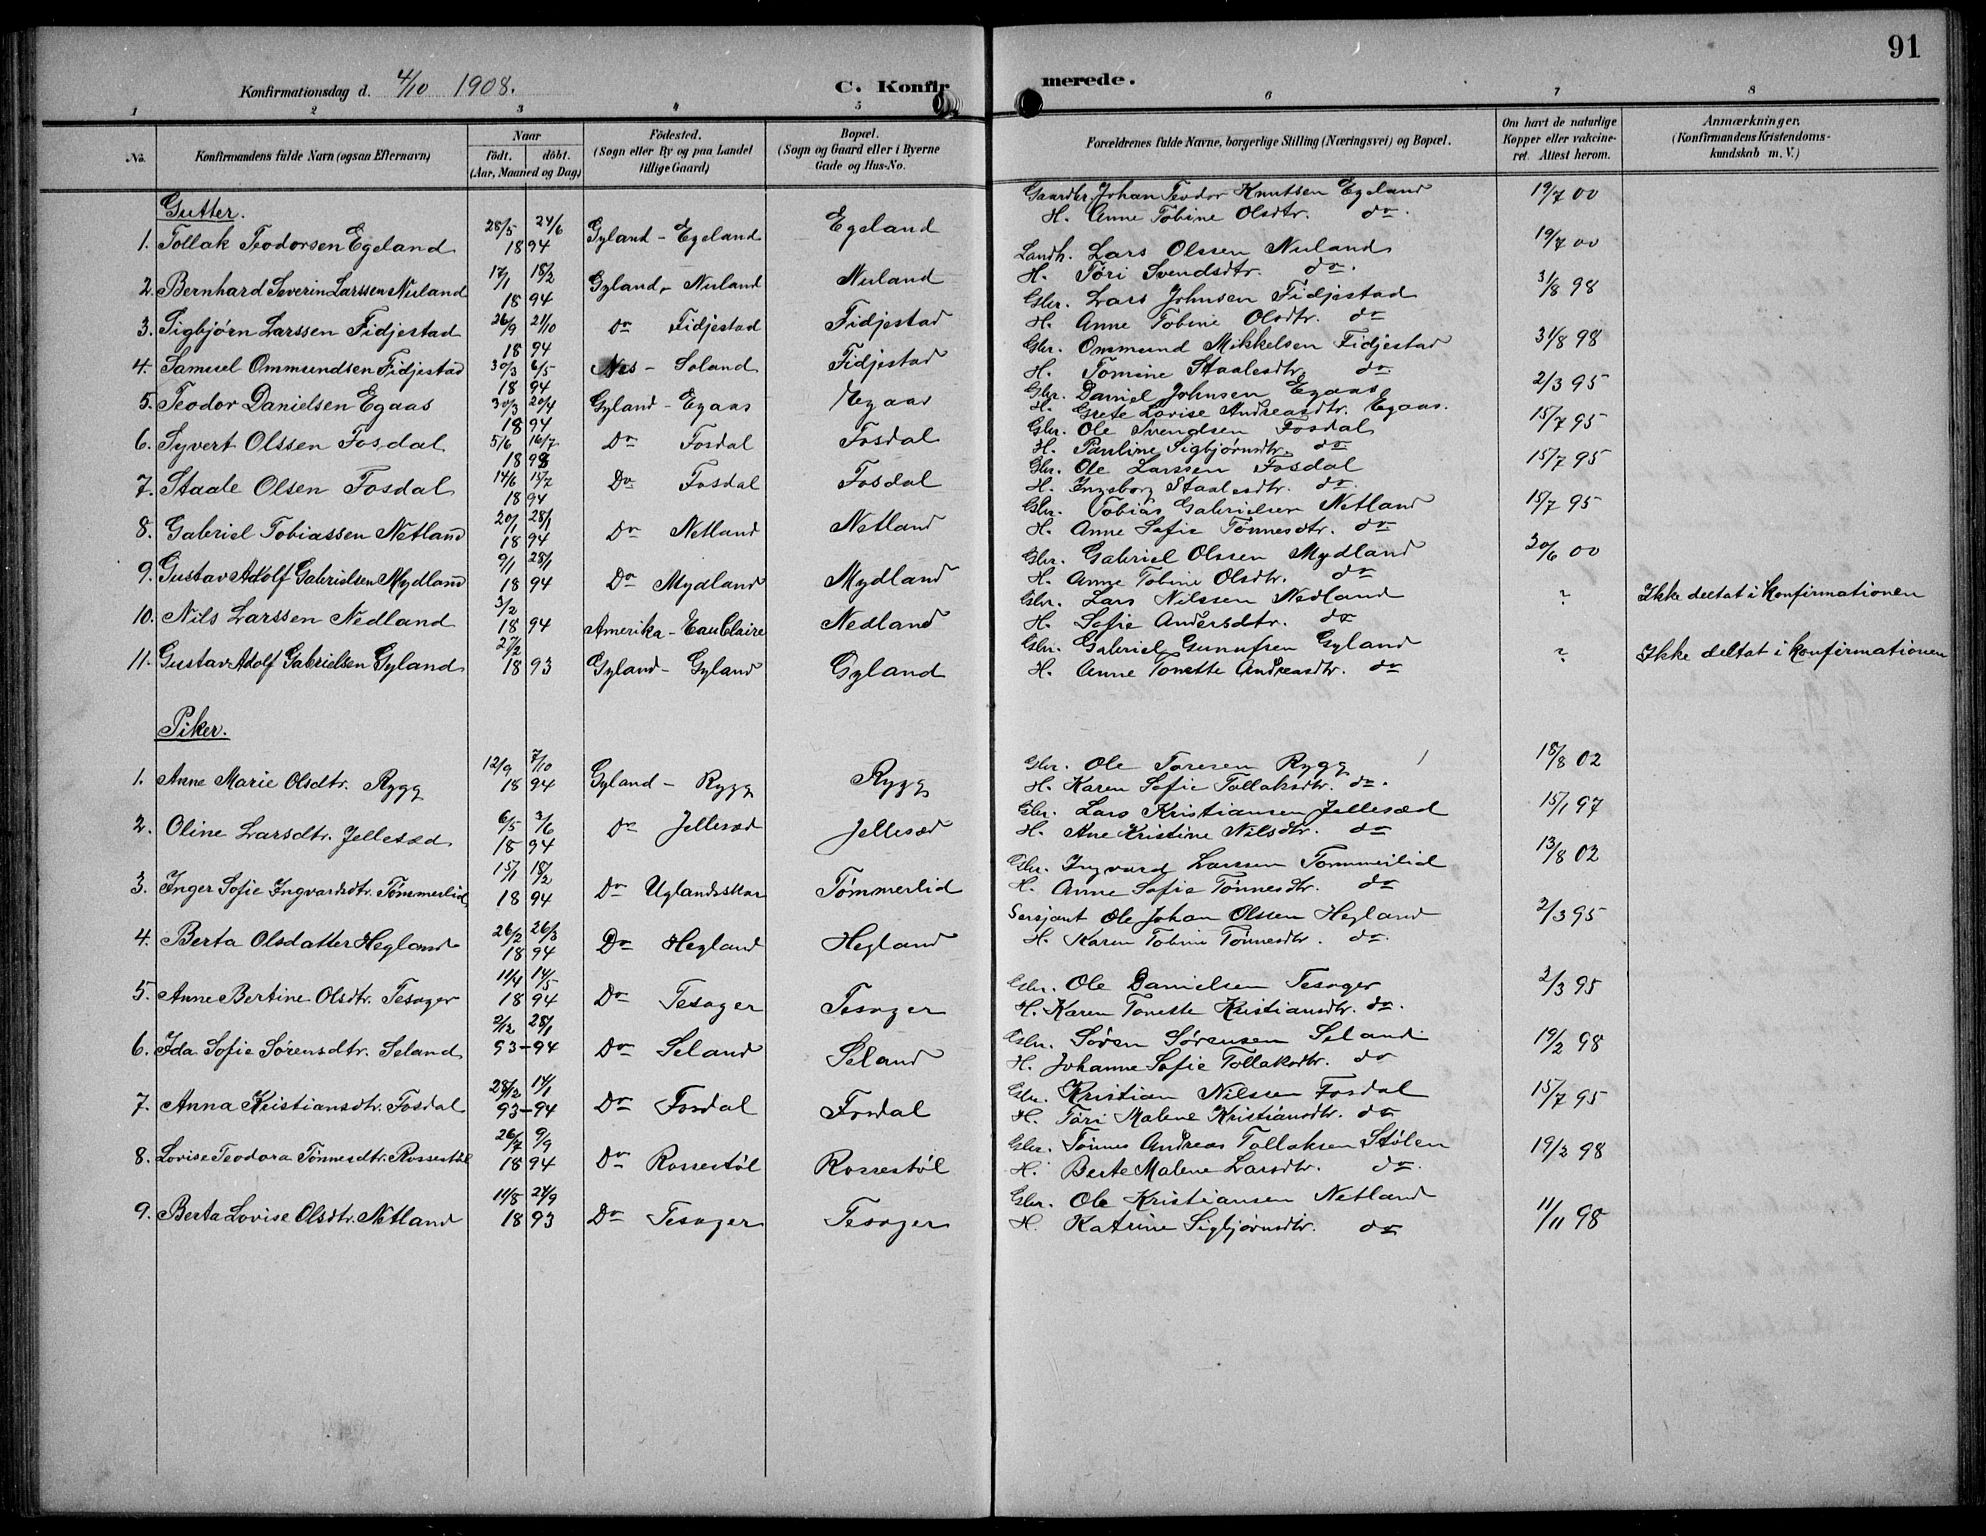 91
Konfirmationsdag d. 4/10 1908. C. Konfirmerede.
1 2 3 4 5 6 7 8
No. Konfirmandens fulde Navn (ogsaa Efternavn) Naar födt. döbt. (Aar, Maaned og Dag) Födested. (Sogn eller By og paa Landet tillige Gaard) Bopæl. (Sogn og Gaard eller i Byerne Gade og Hus-No. Forældrenes fulde Navne, borgerlige Stilling (Næringsvei) og Bopæl. Om havt de naturlige Kopper eller vakcineret. Attest herom. Anmærkninger. (Konfirmandens Kristendomskundskab m. V.)
Gutter.
1. Tollak Teodorsen Egeland 28/5 24/6 1894 Gyland - Egeland Egeland Gaardbr. Johan Teodor Knutsen Egeland 19/7 00
H. Anne Tobine Olsdtr. do.
2. Bernhard Severin Larssen Nuland 17/1 18/2 1894 Gyland - Nuland Nuland Landh. Lars Olssen Nuland 19/7 00
H. Tøri Svendsdtr. do.
3. Sigbjørn Larssen Fidjestad 26/9 21/10 1894 Do Fidjestad Fidjestad Gbr. Lars Johnsen Fidjestad 31/8 98
H. Anne Tobine Olsdtr. do
4. Samuel Ommundsen Fidjestad 30/3 6/5 1894 Nes - Soland Fidjestad Gbr. Ommund Mikkelsen Fidjestad 31/8 98
H. Tomine Staalesdtr. do
5. Teodor Danielsen Egaas 30/3 20/4 1894 Gyland - Egaas Egaas Gbr. Daniel Johnsen Egaas 2/3 95
H. Grete Lovise Andreasdtr. Egaas.
6. Syvert Olssen Fosdal 5/6 16/7 1893 Do Fosdal Fosdal Gbr. Ole Svendsen Fosdal 15/7 95
H. Pauline Sigbjørnsdtr. do
7. Staale Olsen Fosdal 14/6 15/7 1894 Do Fosdal Fosdal Gbr. Ole Larssen Fosdal 15/7 95
H. Ingeborg Staalesdtr. do.
8. Gabriel Tobiassen Netland 20/1 28/1 1894 Do Netland Netland Gbr. Tobias Gabrielsen Netland 15/7 95
H. Anne Sofie Tønnesdtr. do
9. Gustav Adolf Gabrielsen Mydland 9/1 28/1 1894 Do Mydland Mydland Gbr. Gabriel Olssen Mydland 30/6 00
H. Anne Tobine Olsdtr. do
10. Nils Larssen Nedland 3/2 1894 Amerika - Eau Claire Nedland Gbr. Lars Nilssen Nedland ? Ikke deltat i Konfirmationen
H. Sofie Andersdtr. do
11. Gustav Adolf Gabrielsen Gyland 27/2 1893 Gyland - Gyland Gyland Gbr. Gabriel Gunufsen Gyland ? Ikke deltat i Konfirmationen
H. Anne Tonette Andreasdtr. do
Piker.
1. Anne Marie Olsdtr. Rygg 12/9 7/10 1894 Gyland - Rygg Rygg Gbr. Ole Toresen Rygg 18/8 02
H. Karen Sofie Tollaksdtr. do.
2. Oline Larsdtr. Jellesæd 6/5 3/6 1894 Do Jellesæd Jellesæd Gbr. Lars Kristiansen Jellesæd 15/1 97
H. Ane Kristine Nilsdtr. do
3. Inger Sofie Ingvardsdtr. Tømmerlid 15/1 18/2 1894 Do Uglandsskar Tømmerlid Gbr. Ingvard Larssen Tømmerlid 13/8 02
H. Anne Sofie Tønnesdtr. do
4. Berta Olsdatter Hegland 26/2 26/3 1894 Do Hegland Hegland Sersjant Ole Johan Olssen Hegland 2/3 95
H. Karen Tobine Tønnesdtr. do.
5. Anne Bertine Olsdtr. Tesager 11/4 14/5 1894 Do Tesager Tesager Gbr. Ole Danielsen Tesager 2/3 95
H. Karen Tonette Kristiansdtr. do.
6. Ida Sofie Sørensdtr. Seland 2/12 28/1 93-94 Do Seland Seland Gbr. Søren Sørensen Seland 19/2 98
H. Johanne Sofie Tollaksdtr. do
7. Anna Kristiansdtr. Fosdal 28/12 14/1 93-94 Do Fosdal Fosdal Gbr. Kristian Nilssen Fosdal 15/7 95
H. Tøri Malene Kristiansdtr. do
8. Lovise Teodora Tønnesdtr. Rossestøl 26/7 9/9 1894 Do Rossestøl Rossestøl Gbr. Tønnes Andreas Tollaksen Stølen 19/2 98
H. Berte Malene Larsdtr. do.
9. Berta Lovise Olsdtr. Netland 11/8 24/9 1893 Do Tesager Tesager Gbr. Ole Kristiansen Netland 11/11 98
H. Katrine Sigbjørnsdtr. do